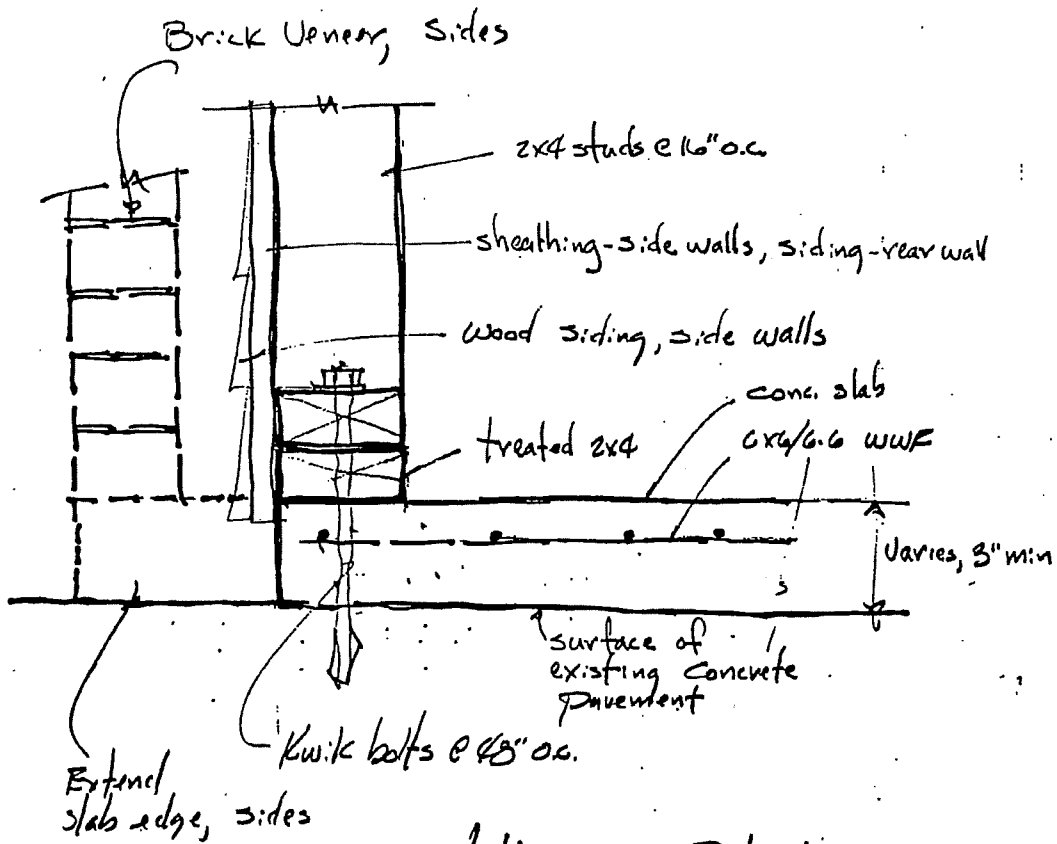 Brick Veneer, Sides
2x4 studs @ 16" o.c.
sheathing-side walls, siding-rear wall
wood siding, side walls
conc. slab
treated 2x4
6x6/6.6 WWF
Varies, 3" min
surface of
existing concrete
pavement
Kwik bolts @ 48" o.c.
Extend
slab edge, sides